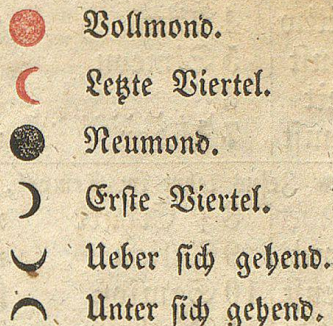 Vollmond.
Letzte Viertel.
Neumond.
Erste Viertel.
Ueber sich gehend.
Unter sich gehend.